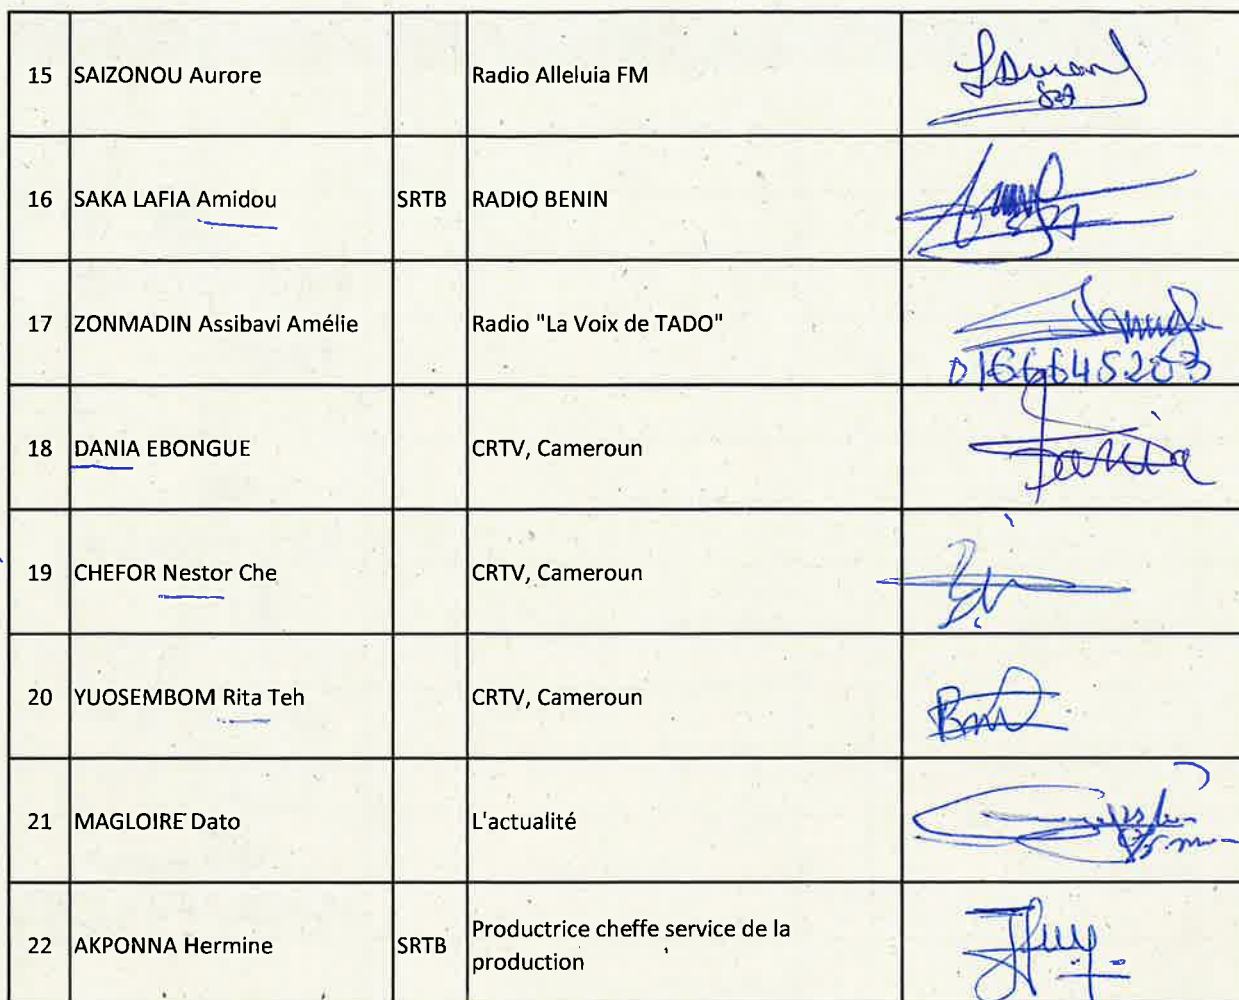 15 SAIZONOU Aurore Radio Alleluia FM
16 SAKA LAFIA Amidou SRTB RADIO BENIN
17 ZONMADIN Assibavi Amélie Radio "La Voix de TADO"
0166645203
18 DANIA EBONGUE CRTV, Cameroun Dania
19 CHEFOR Nestor Che CRTV, Cameroun
20 YUOSEMBOM Rita Teh CRTV, Cameroun
21 MAGLOIRE Dato L'actualité
22 AKPONNA Hermine SRTB Productrice cheffe service de la
production